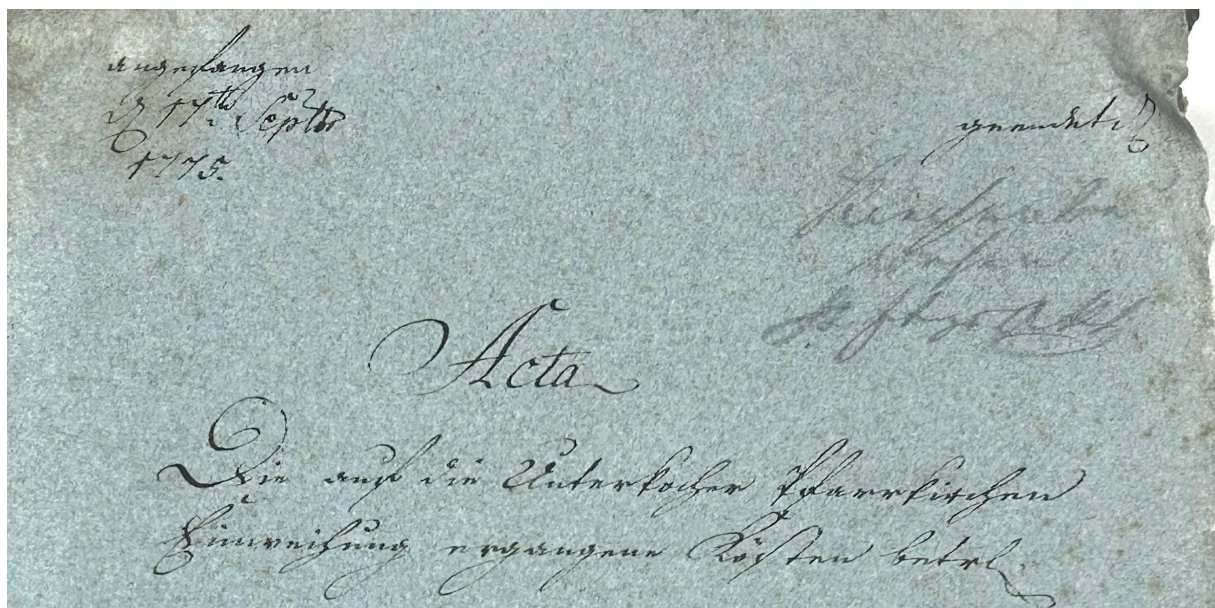 angefangen
d 17ten Septbr
1775.
geendet
Acta
Die auf die Unterkocher Pfarrkirchen
Einweihung ergangene Kösten betrl.